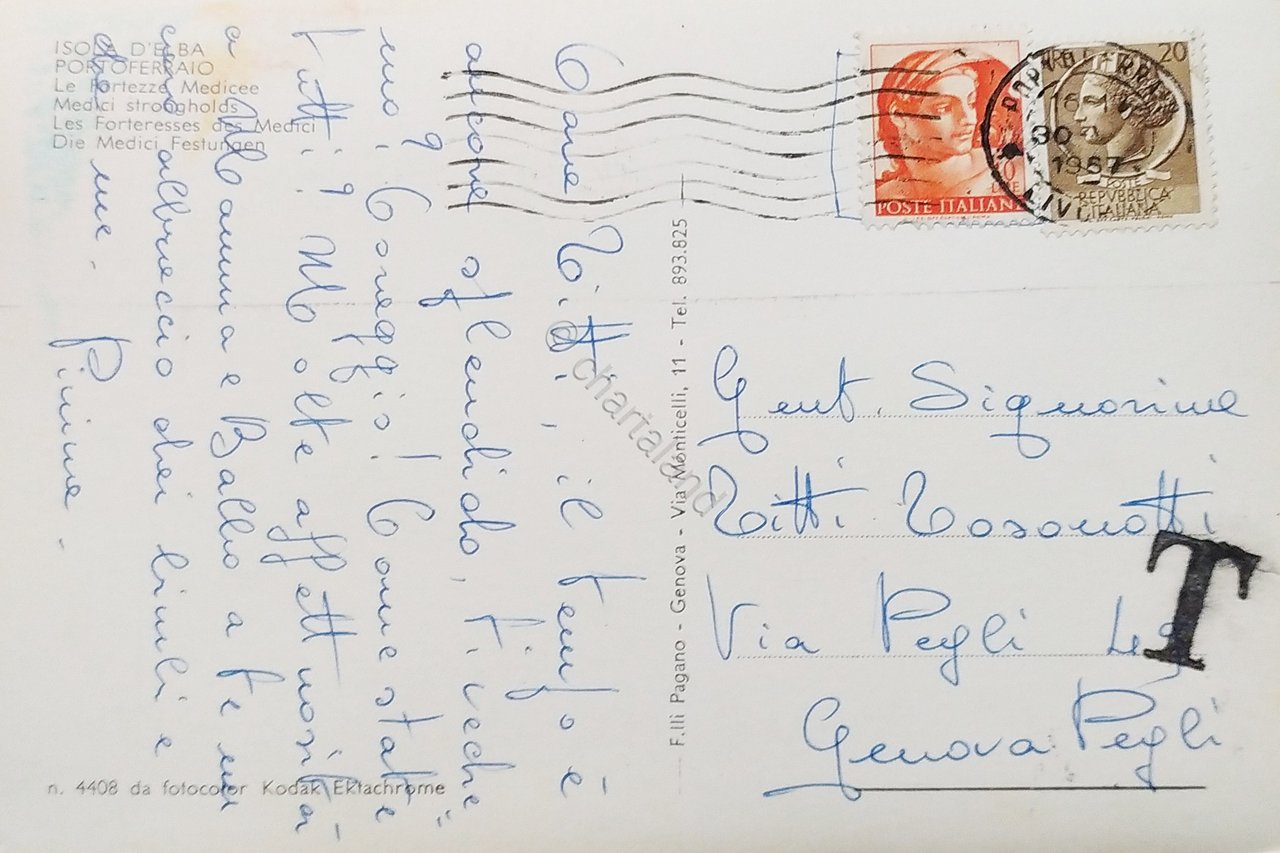 ISOLA D'ELBA
PORTOFERRAIO
Le Fortezze Medicee
Medici strongholds
Les Forteresses des Medici
Die Medici Festungen
Cara Titti, il tempo è
ancora splendido, ti vedre=
mo? Coraggio! Come state
tutti? Molte affettuosità
a Mamma e Babbo a te un
caro abbraccio dei bimbi e
me.
Pinina.
n. 4408 da fotocolor Kodak Ektachrome
F.lli Pagano - Genova - Via Monticelli, 11 - Tel. 893.825
© chartaland
POSTE ITALIANE
20
POSTE
REPVBBLICA
ITALIANA
1967
LIV
T
Gent. Signorina
Titti Tosonotti
Via Pegli
Genova Pegli